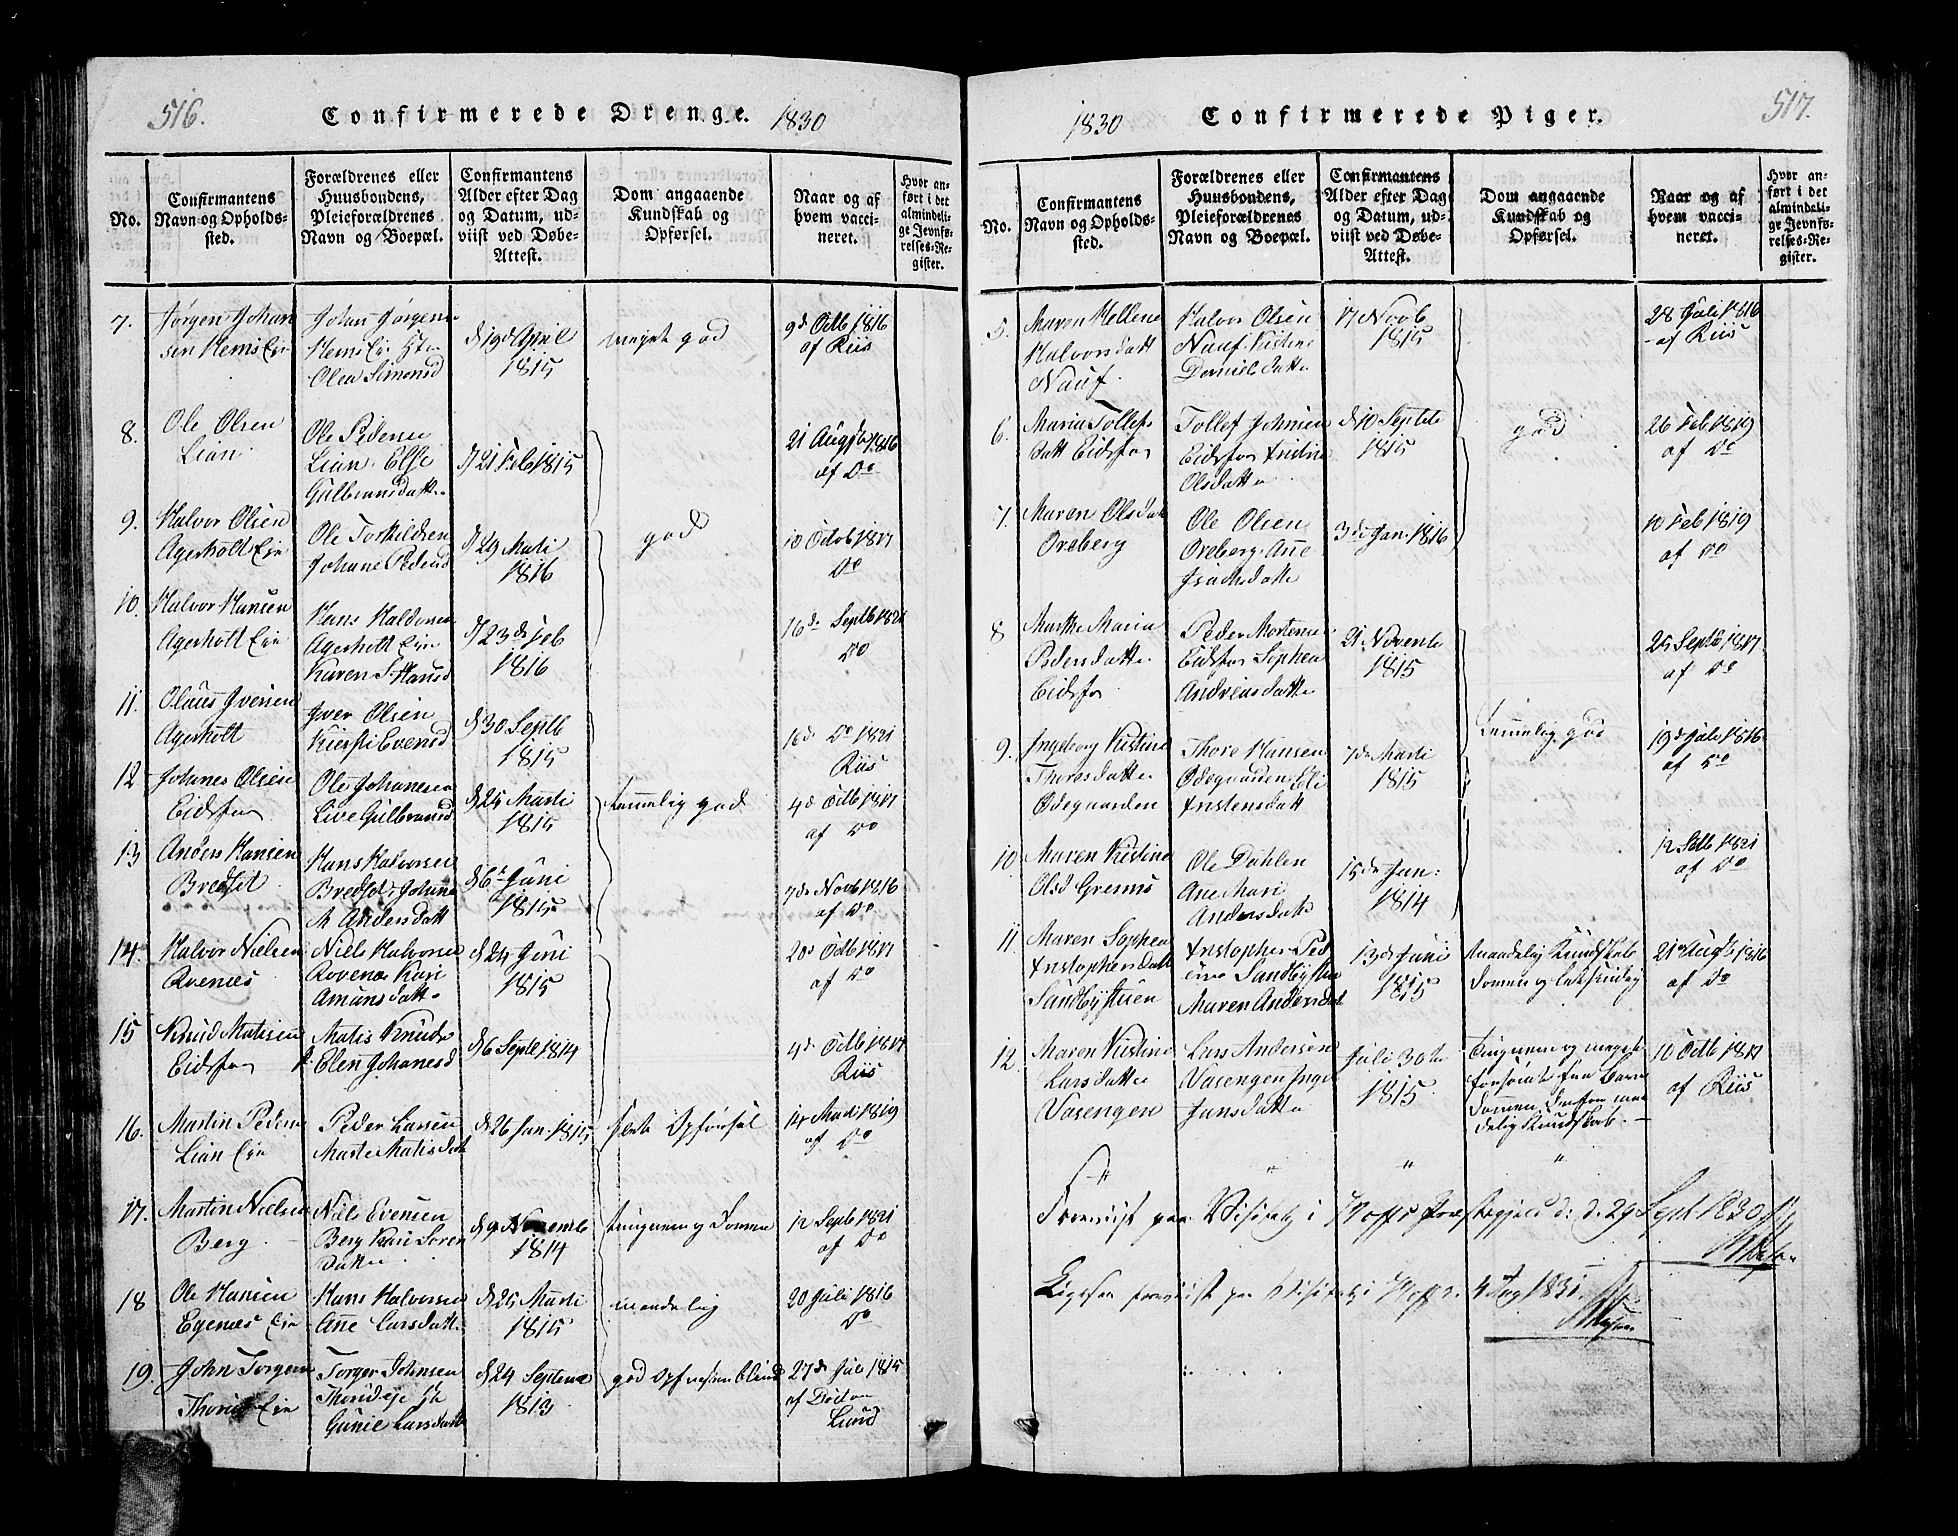 516.
Confirmerede Drenge.
1830
No.
Confirmantens Navn og Opholds-sted.
Forældrenes eller Huusbondens, Pleieforældrenes Navn og Boepæl.
Confirmantens Alder efter Dag og Datum, ud-viist ved Døbe-Attest.
Dom angaaende Kundskab og Opførsel.
Naar og af hvem vacci-neret.
Hvor an-ført i det almindeli-ge Jevnfø-relses-Re-gister.
7. Jørgen Johan
sen Hems Eie
Johan Jørgens
Hems Eie
Olea Simensd
d 19de April
1815
meget god
9de Octb 1816
af Riis
8. Ole Olsen
Lian
Ole Pedersen
Lian Else
Gulbransdatt
d 21 Feb 1815
21 August 1816
af Do
9. Halvor Olsen
Agerholt Eie
Ole Torkildsen
Johane Pedersd
d 29 Marti
1816
god
10 Octob 1817
Do
10. Halvor Hansen
Agerholt Eie
Hans Haldorsen
Agerholt Eie
Karen S. Hansd
d 23de Feb
1816
16de Septb 1821
Do
11. Olaus Iversen
Agerholt
Iver Olsen
Kiersti Evensd
d 30 Septb
1815
16de Do 1821
Riis
12 Johanes Olsen
Eidsfos
Ole Johanesen
Live Gulbransd
d 25 Marti
1815
temmelig god
4de Octb 1817
af Do
13 Anders Hansen
Bredset
Hans Halvorsen
Bredset Johane
M Andersdatt
d 6te Juni
1815
7de Novb 1816
af Do
14. Halvor Nielsen
Rvenæs
Niels Halvorsen
Kari
Amunsdatt
d 24 Juni
1815
20de Octb 1817
af Do
15 Knud Matisen
Eidsfos
Matis Knuds
Elen Johanesd
d 6 Septb 1814
4de Octb 1817
Riis
16. Martin Peders
Lian Eie
Peder Larsen
Marte Matisdatt
d 26 Jan. 1815
slet Opførsel
14 Marti 1819
af Do
17. Martin Nielsen
Berg
Niels Evensen
Berg Kari Søren
datter
d 9 Novemb
1814
12 Septb 1821
af Do
18 Ole Hansen
Egenæs Eie
Hans Halvorsen
Ane Larsdatt
d 25 Marti
1815
maadelig
20 Juli 1816
Do
19. John Torgers
Thorud Eie
Torger Johnsen
Gunie Larsdatt
d 24 Septemb
1813
god Opf næsten blind
27de Juli 1815
af Doctor
Lund
517.
1830
Confirmerede Piger.
No.
Confirmantens Navn og Opholds-sted.
Forældrenes eller Huusbondens, Pleieforældrenes Navn og Boepæl.
Confirmantens Alder efter Dag og Datum, ud-viist ved Døbe-Attest.
Dom angaaende Kundskab og Opførsel.
Naar og af hvem vacci-neret.
Hvor an-ført i det almindeli-ge Jevnfø-relses-Re-gister.
5. Maren Hellene
Halvorsdatt
Nauf
Halvor Olsen
Nauf Kistine
Danielsdatter
17 Novb
1815
28 Juli 1816
af Riis
6. Maria Tollefs
datt Eidsfos
Tollef Johnsen
Eidsfos
Olsdatter
d 10 Septb
1815
god
26 Feb 1819
af Do
7. Maren Olsdatt
Oreberg
Ole Olsen
Oreberg Ane
Isachsdatter
3de Jan. 1816
10 Feb 1819
af Do
8 Marthe Maria
Pedersdatter
Eidsfos
Peder Mortens
Eidsfos Sophea
Andreasdatter
21 Novemb
1815
25 Septb 1817
af Do
9. Ingeborg Kistine
Thoresdatter
Ødegaarden
Thore Hansen
Ødegaarden Eli
7de Marti
1815
temmelig god
19de Juli 1816
af Do
10. Maren Kistine
Olsd Grenns
Ole Dahlen
Ane Mari
Andersdatt
15de Jun:
1814
12 Septb 1821
af Do
11 Maren Sophea
Christophersdatt
Sandbystuen
Christopher Ped
Sandbystu
Maren Andersdatt
13de Juni
1815
Maadelig Kundskab
21de Aug 1816
af Do
12. Maren Kistine
Larsdatter
Vasengen
Lars Andersen
Vasengen
Jansdatter
Juli 30te
1815
10 Octb 1817
af Riis
Foreviist paa Visitats i Hoffs Præstegjeld d. 29 Sept 1830
Ligesaa foreviist paa Visitats i Hoff 4 Aug 1831.